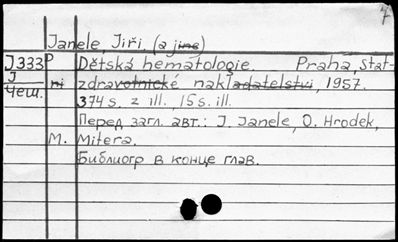 Janele, Jiří, (a jiné)
J333P Dětská hematologie. Praha, Stát-
J ní zdravotnické nakladatelství, 1957.
Чеш. 374 s. z ill., 15 s. ill.
Перед загл. авт.: J. Janele, O. Hrodek,
M. Mitera.
Библиогр в конце глав.